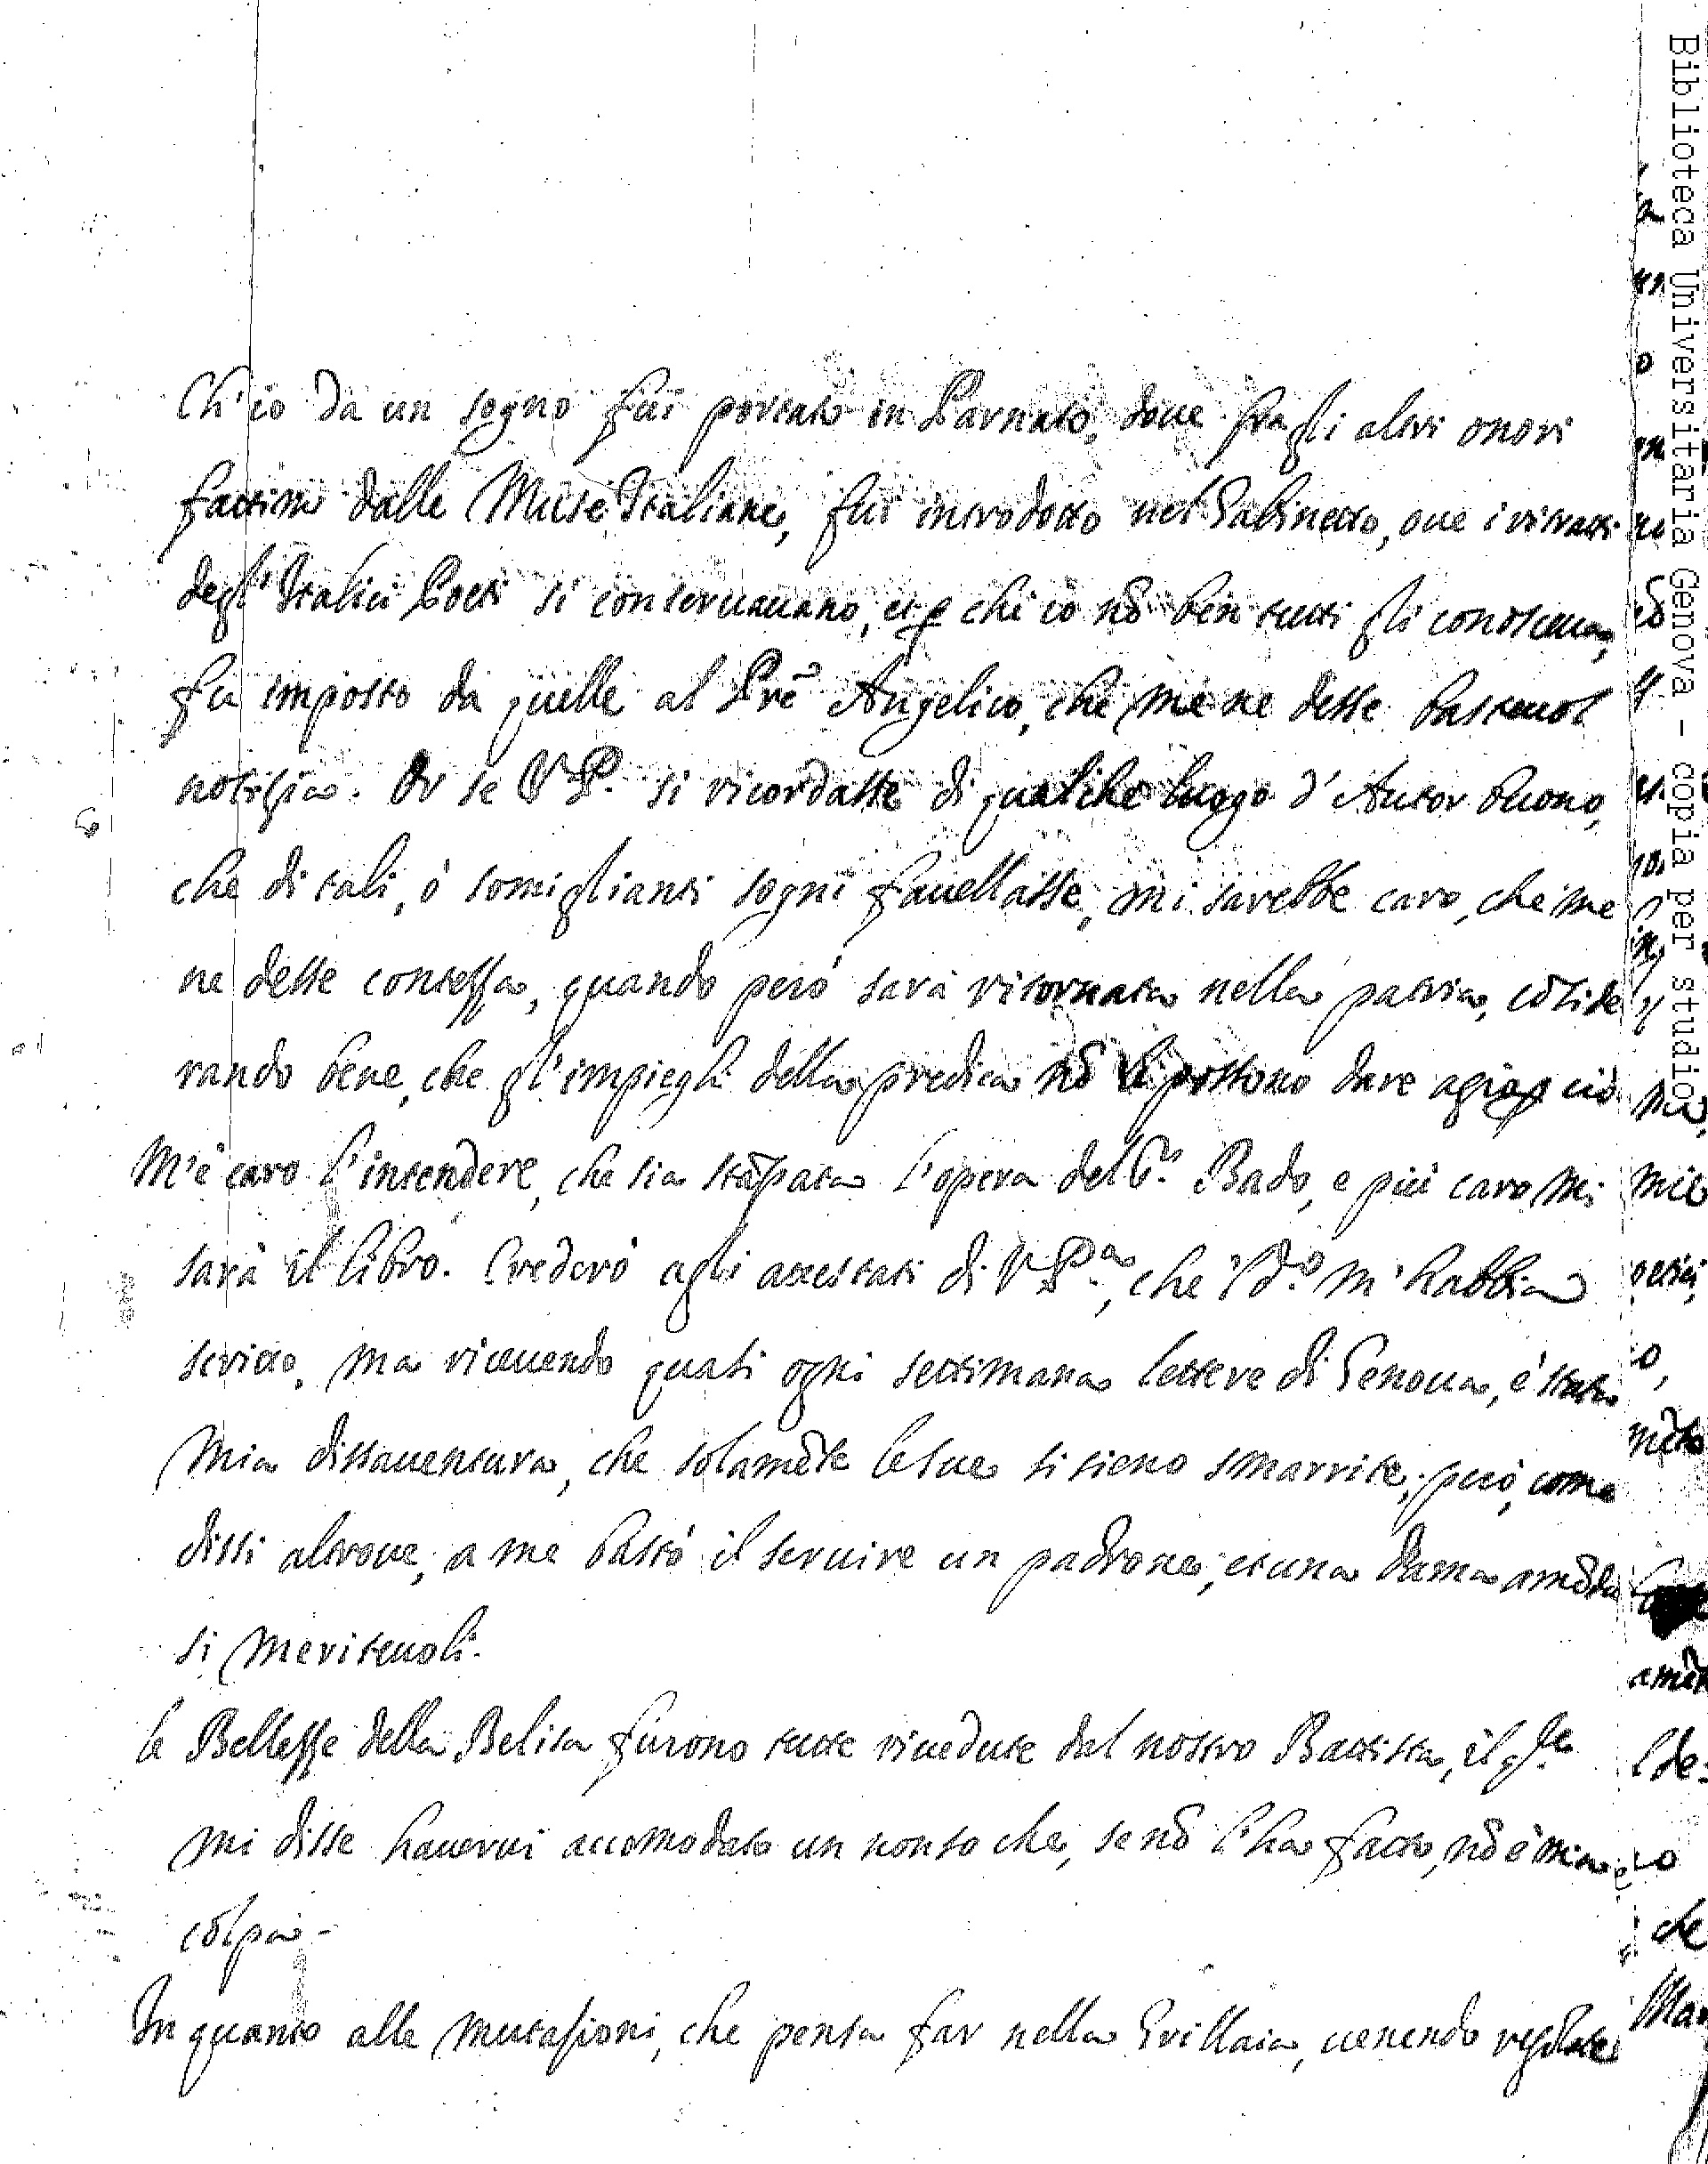 Ch'io da un sogno fui portato in Parnaso, doue fra gli altri onori
fattimi dalle Muse Italiane, fui introdotto nel Gabinetto, oue i ritratti
degl'Italici Poeti si conseruauano, et ꝑ chi io nō ben tutti gli conosceua,
fu imposto da quelle al Prē Angelico, che me ne desse basteuol
notizia. Or se V. P. si ricordasse di qualche luogo d'Autor buono,
che di tali, ò somiglianti sogni fauellasse, mi sarebbe caro, che me
ne desse contezza, quando però sarà ritornata nella patria, cōside
rando bene, che gl'impieghi della predica nō li possono dare agio ꝑ ciò.
M'è caro l'intendere, che sia stāpata l'opera del Bado, e più caro mi
sarà il libro. Crederò agli attestati di V. P.a, che 'l d.o m'habbia
scritto, ma riceuendo quasi ogni settimana lettere di Genoua, è stata
mia disauentura, che solamēte le sue si sieno smarrite; però, come
dissi altroue, a me bastò il seruire un padrone, et una dama amēdu
si meriteuoli.
le Bellezze della Belisa furono tutte riuedute dal nostro Battista, il qle
mi disse hauerui accomodato un nonso che, se nō l'ha fatto, nō è mia
colpa.
In quanto alle mutazioni, che pensa far nella Grillaia, uenendo
Biblioteca Universitaria Genova - copia per studio